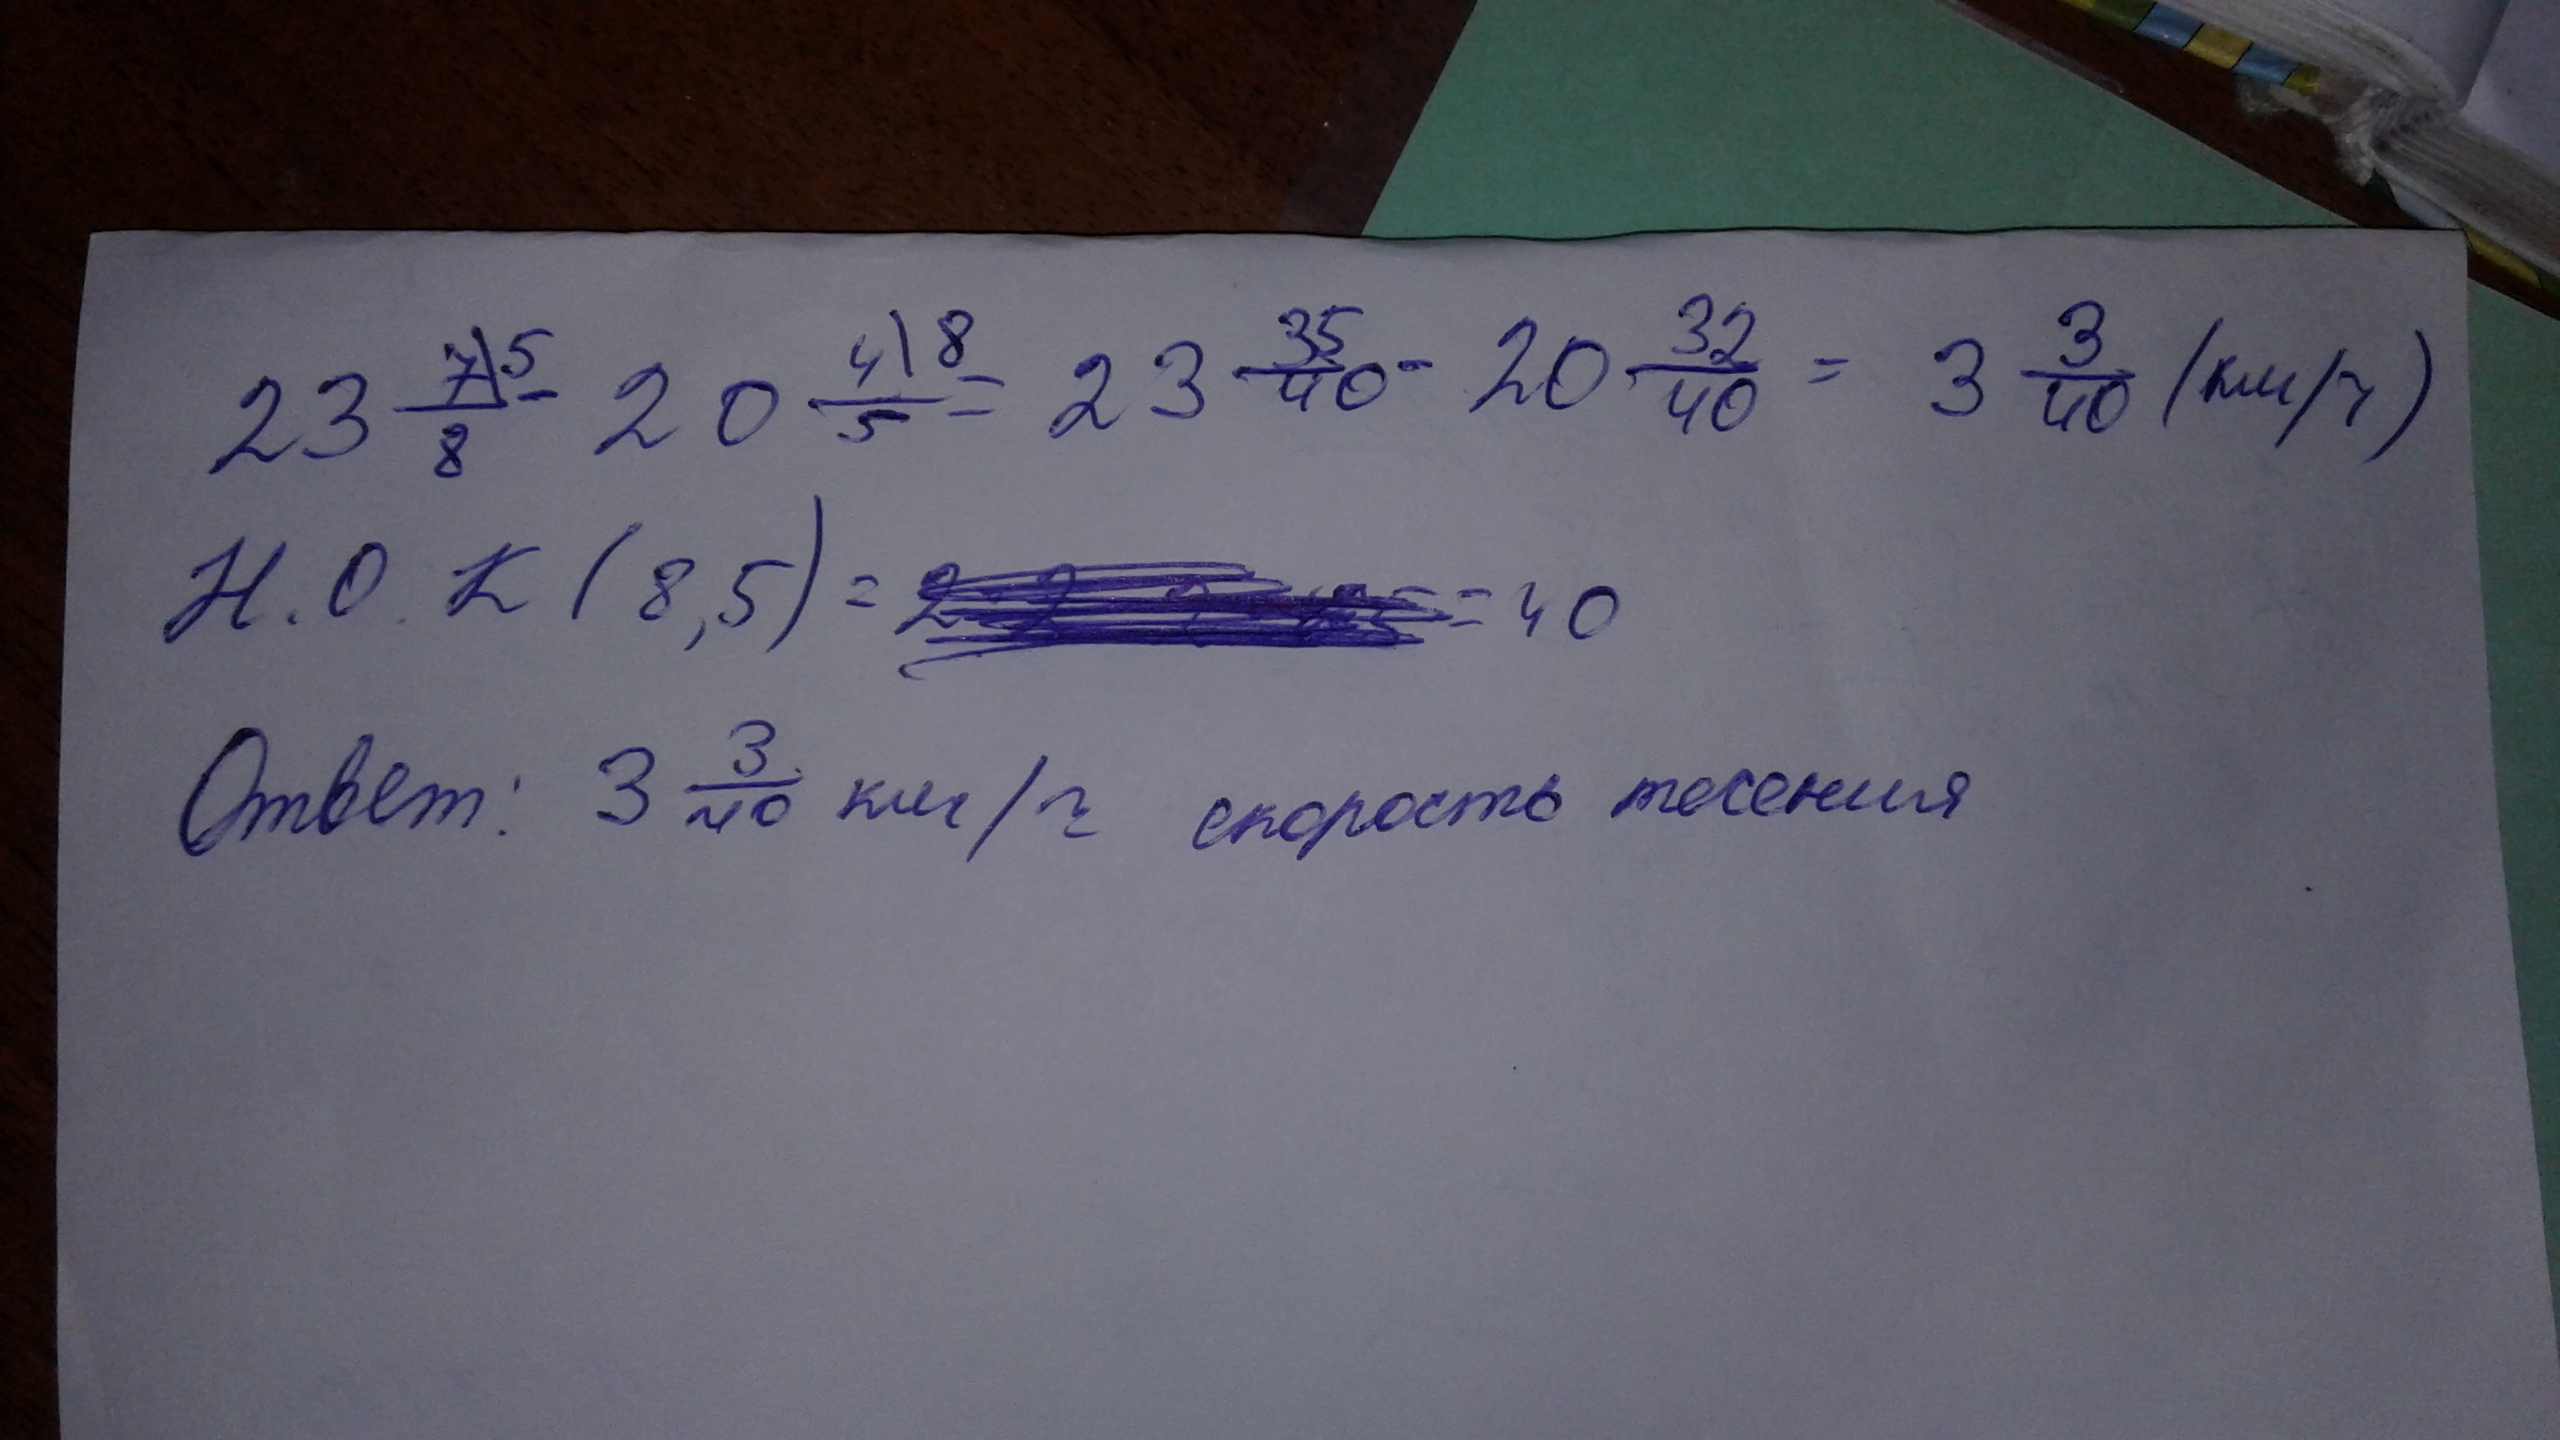 23 7\5/8 - 20 4\8/5 = 23 35/40 - 20 32/40 = 3 3/40 (км/ч)
Н.О.К (8,5) = = 40
Ответ: 3 3/40 км/ч скорость тесения